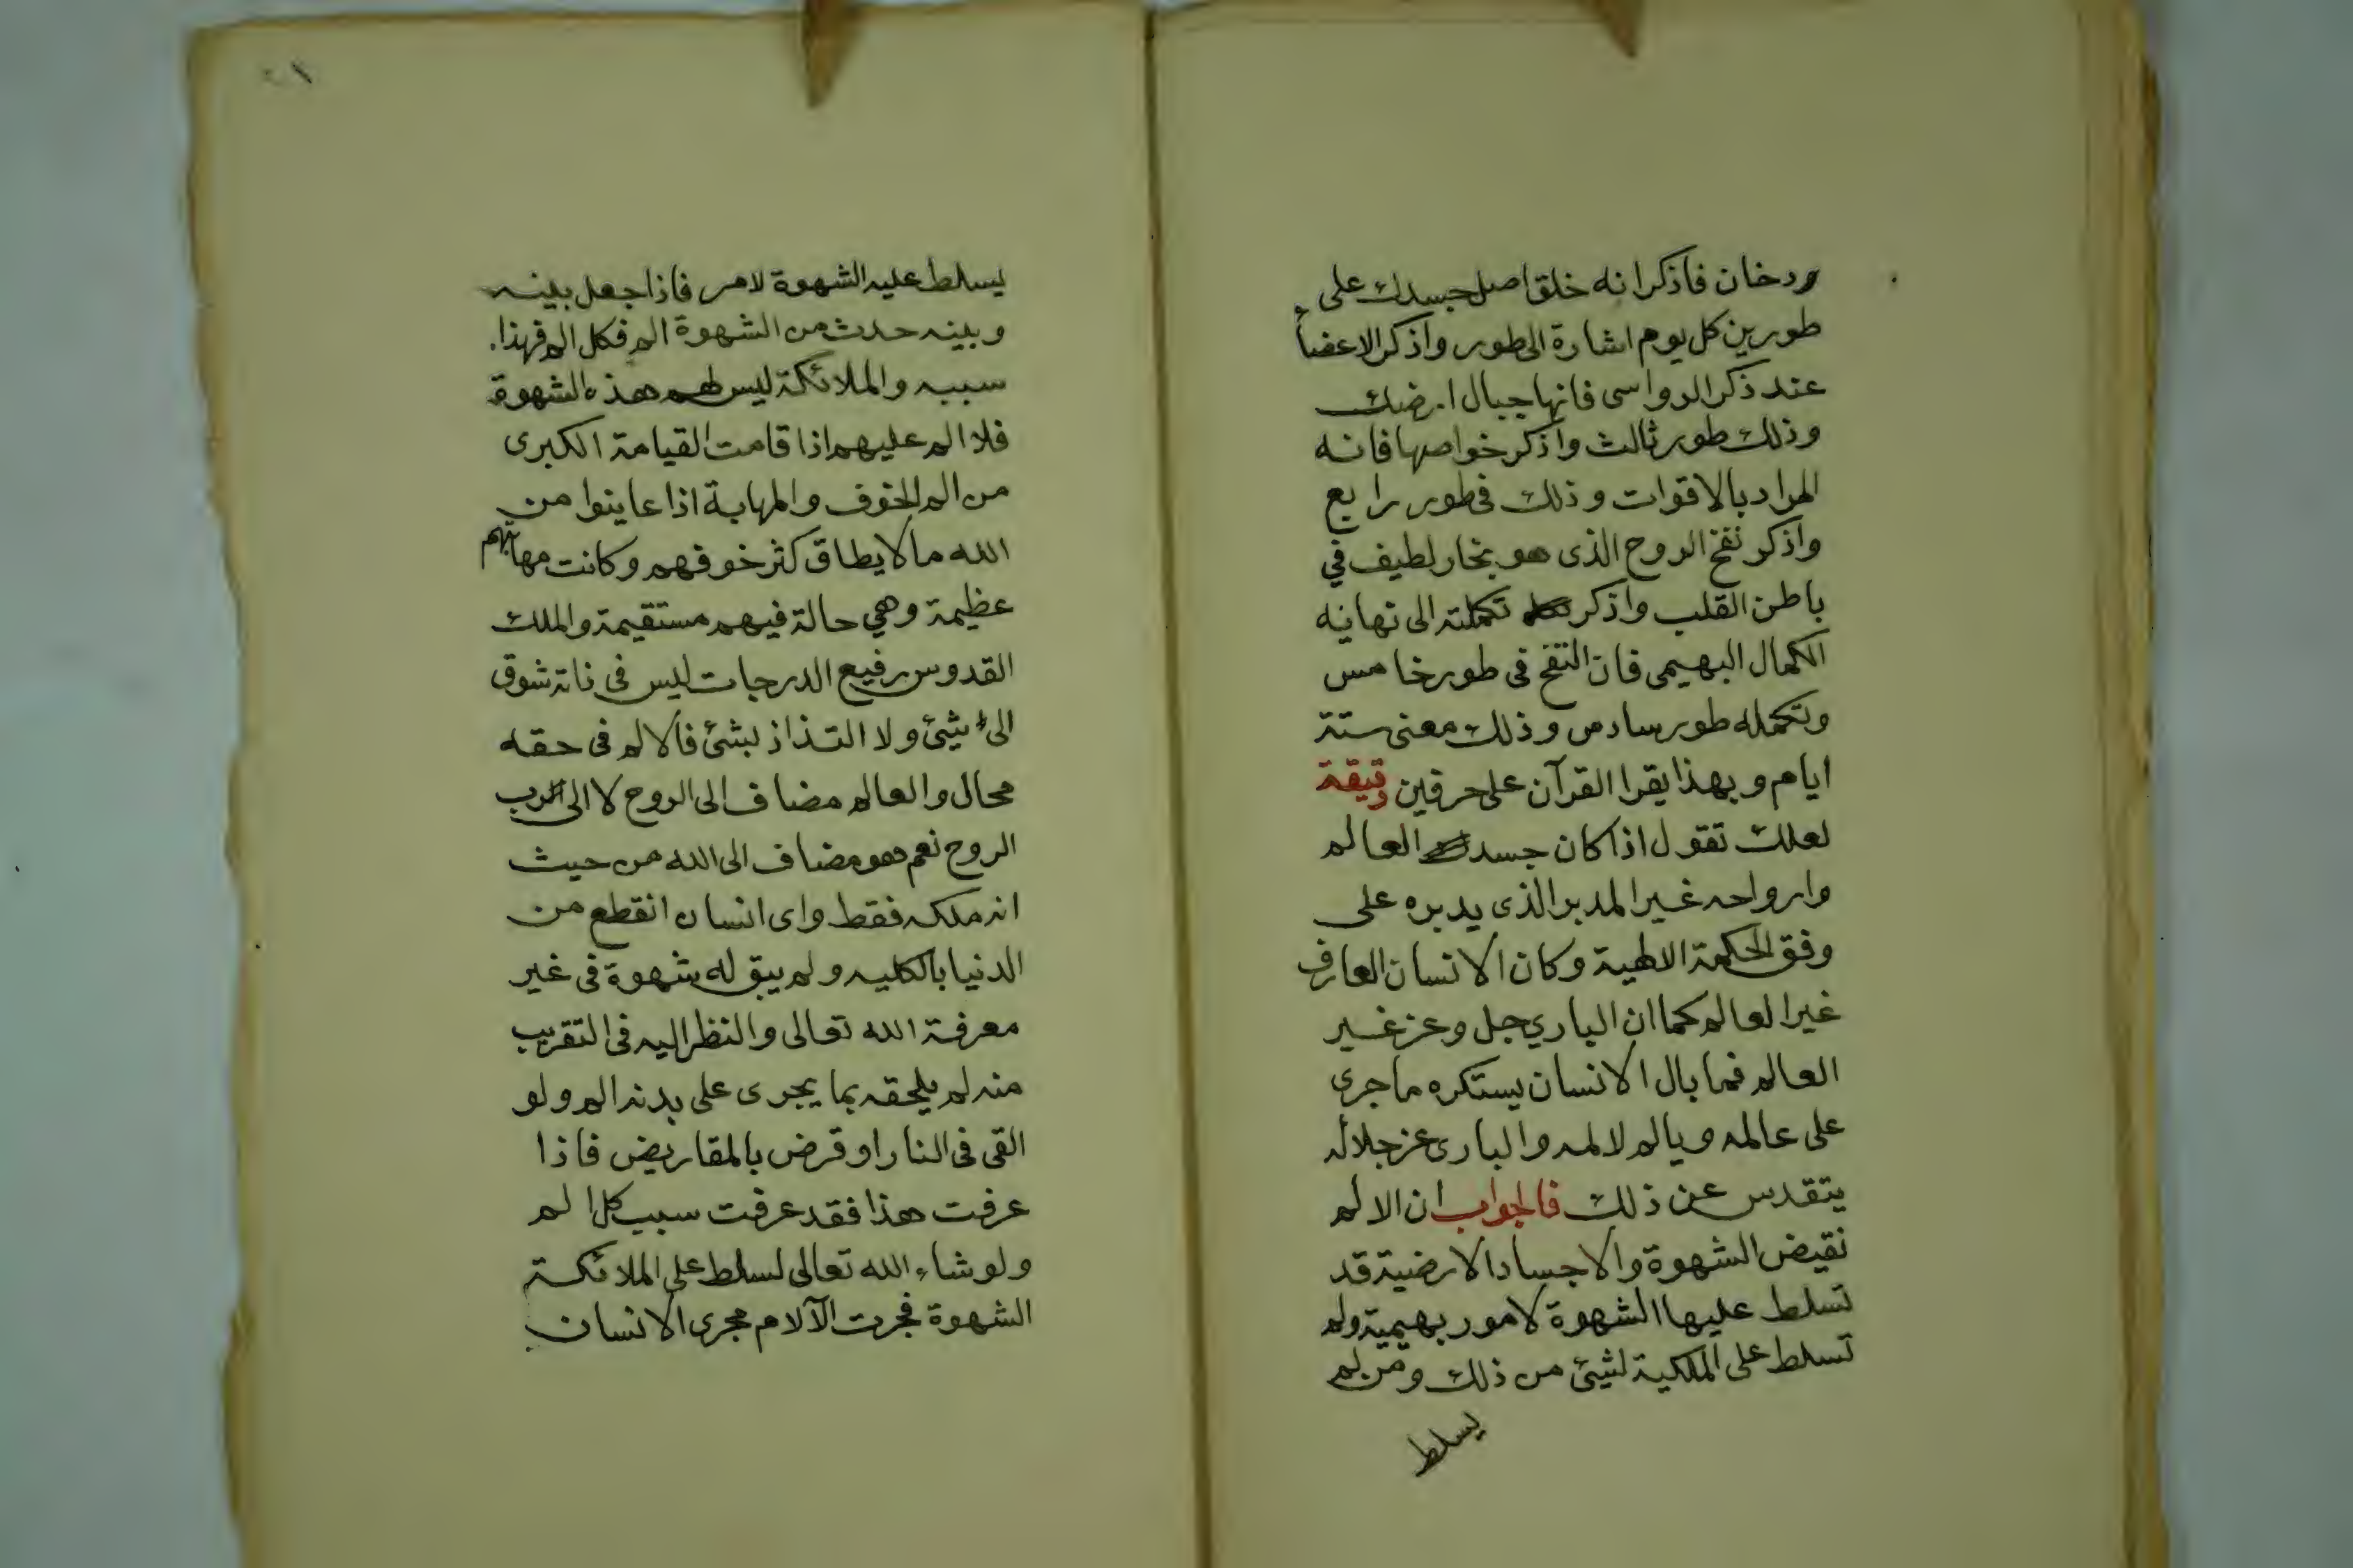 ودخان فاذكر انه خلق اصل جسدك على
طورين كل يوم اشارة الى طور واذكر الاعضاء
عند ذكر الرواسى فانها جبال ارضك
وذلك طور ثالث واذكر خواصها فانه
المراد بالاقوات وذلك فى طور رابع
واذكر نفخ الروح الذى هو بخار لطيف في
باطن القلب واذكر تكملته الى نهانيه
الكمال البهيمى فان النفخ فى طور خامس
وتكمله طور سادس وذلك معنى ستة
ايام وبهذا يقرا القرآن على حرفين دقيقة
لعلك تقول اذا كان جسد العالم
وارواحه غير المدبر الذى يدبره على
وفق الحكمة الالهية وكان الانسان العارف
غير العالم كما ان الباري جل وعز غير
العالم فما بال الانسان يستكره ما جرى
على عالمه ويالم لالمه والبارى عز جلاله
يتقدس عن ذلك فالجواب ان الالم
نقيض الشهوة والاجساد الارضية قد
تسلط عليها الشهوة لامور بهيمية ولم
تسلط على الملكية لشئ من ذلك ومن لم
يسلط
يسلط عليه الشهوة لامر فاذا جعل بينه
وبينه حدث من الشهوة الم فكل الم فهذا
سببه والملائكة ليس لهم هذه الشهوة
فلا الم عليهم اذا قامت القيامة الكبرى
من الم الخوف والمهابة اذا عاينوا من
الله ما لا يطاق كثر خوفهم وكانت مهابتهم
عظيمة وهي حالة فيهم مستقيمة والملك
القدوس رفيع الدرجات ليس فى ذاته شوق
الى شئ ولا التذاذ بشئ فالالم فى حقه
محال والعالم مضاف الى الروح لا الى الرب
الروح نعم هو مضاف الى الله من حيث
انه ملكه فقط واى انسان انقطع من
الدنيا بالكليه ولم يبق له شهوة فى غير
معرفة الله تعالى والنظر اليه فى التقريب
منه لم يلحقه بما يجرى على بدنه الم ولو
القى فى النار او قرض بالمقاريض فاذا
عرفت هذا فقد عرفت سبب كل الم
ولو شاء الله تعالى لسلط على الملائكة
الشهوة فجرت الآلام مجرى الانسان